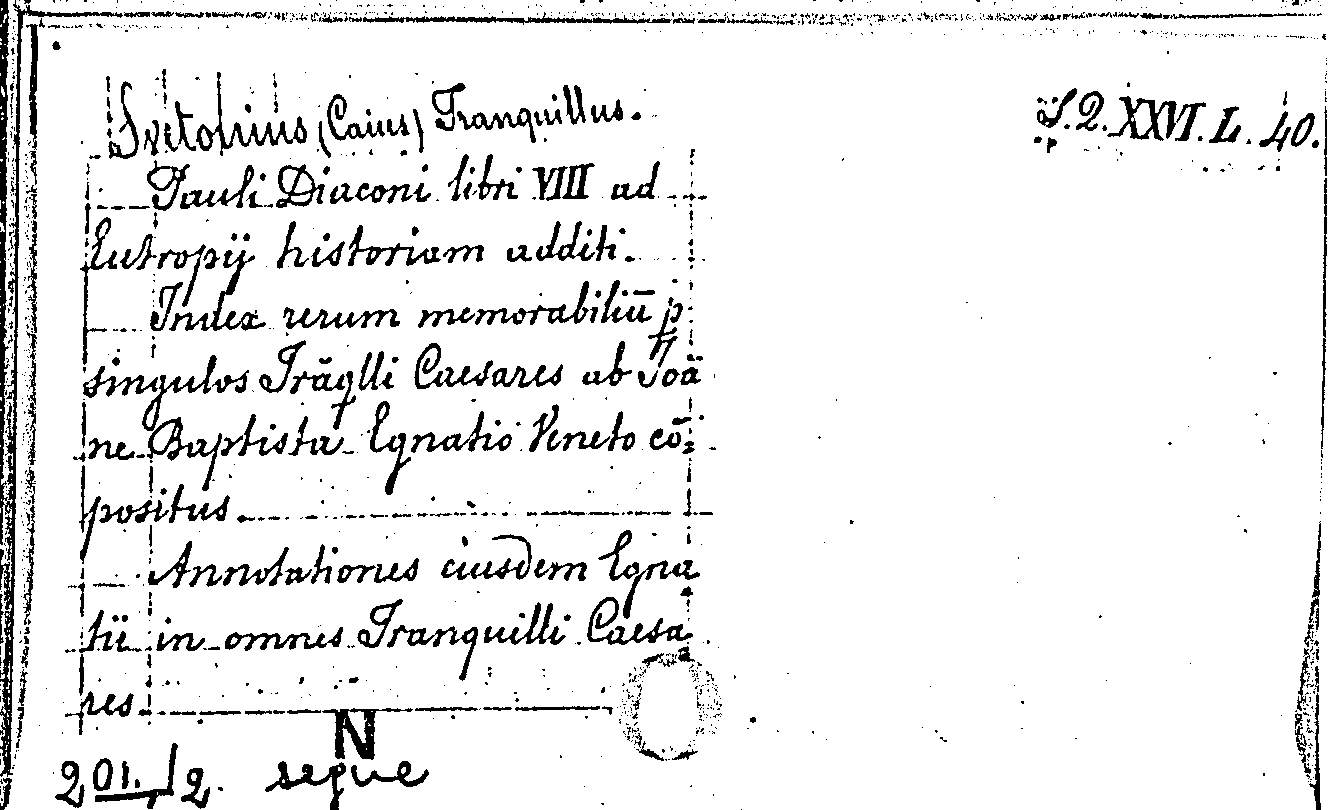 Svetonius (Caius) Tranquillus.
S.Q.XXVI.L.40.
Pauli Diaconi libri VIII ad
Eutropij historiam additi.
Index rerum memorabiliū p
singulos Trāqlli Caesares ab Joā
ne Baptista Egnatio Veneto cō=
positus.
Annotationes eiusdem Egna
tii in omnes Tranquilli Caesa
res.
N
201./2. segue